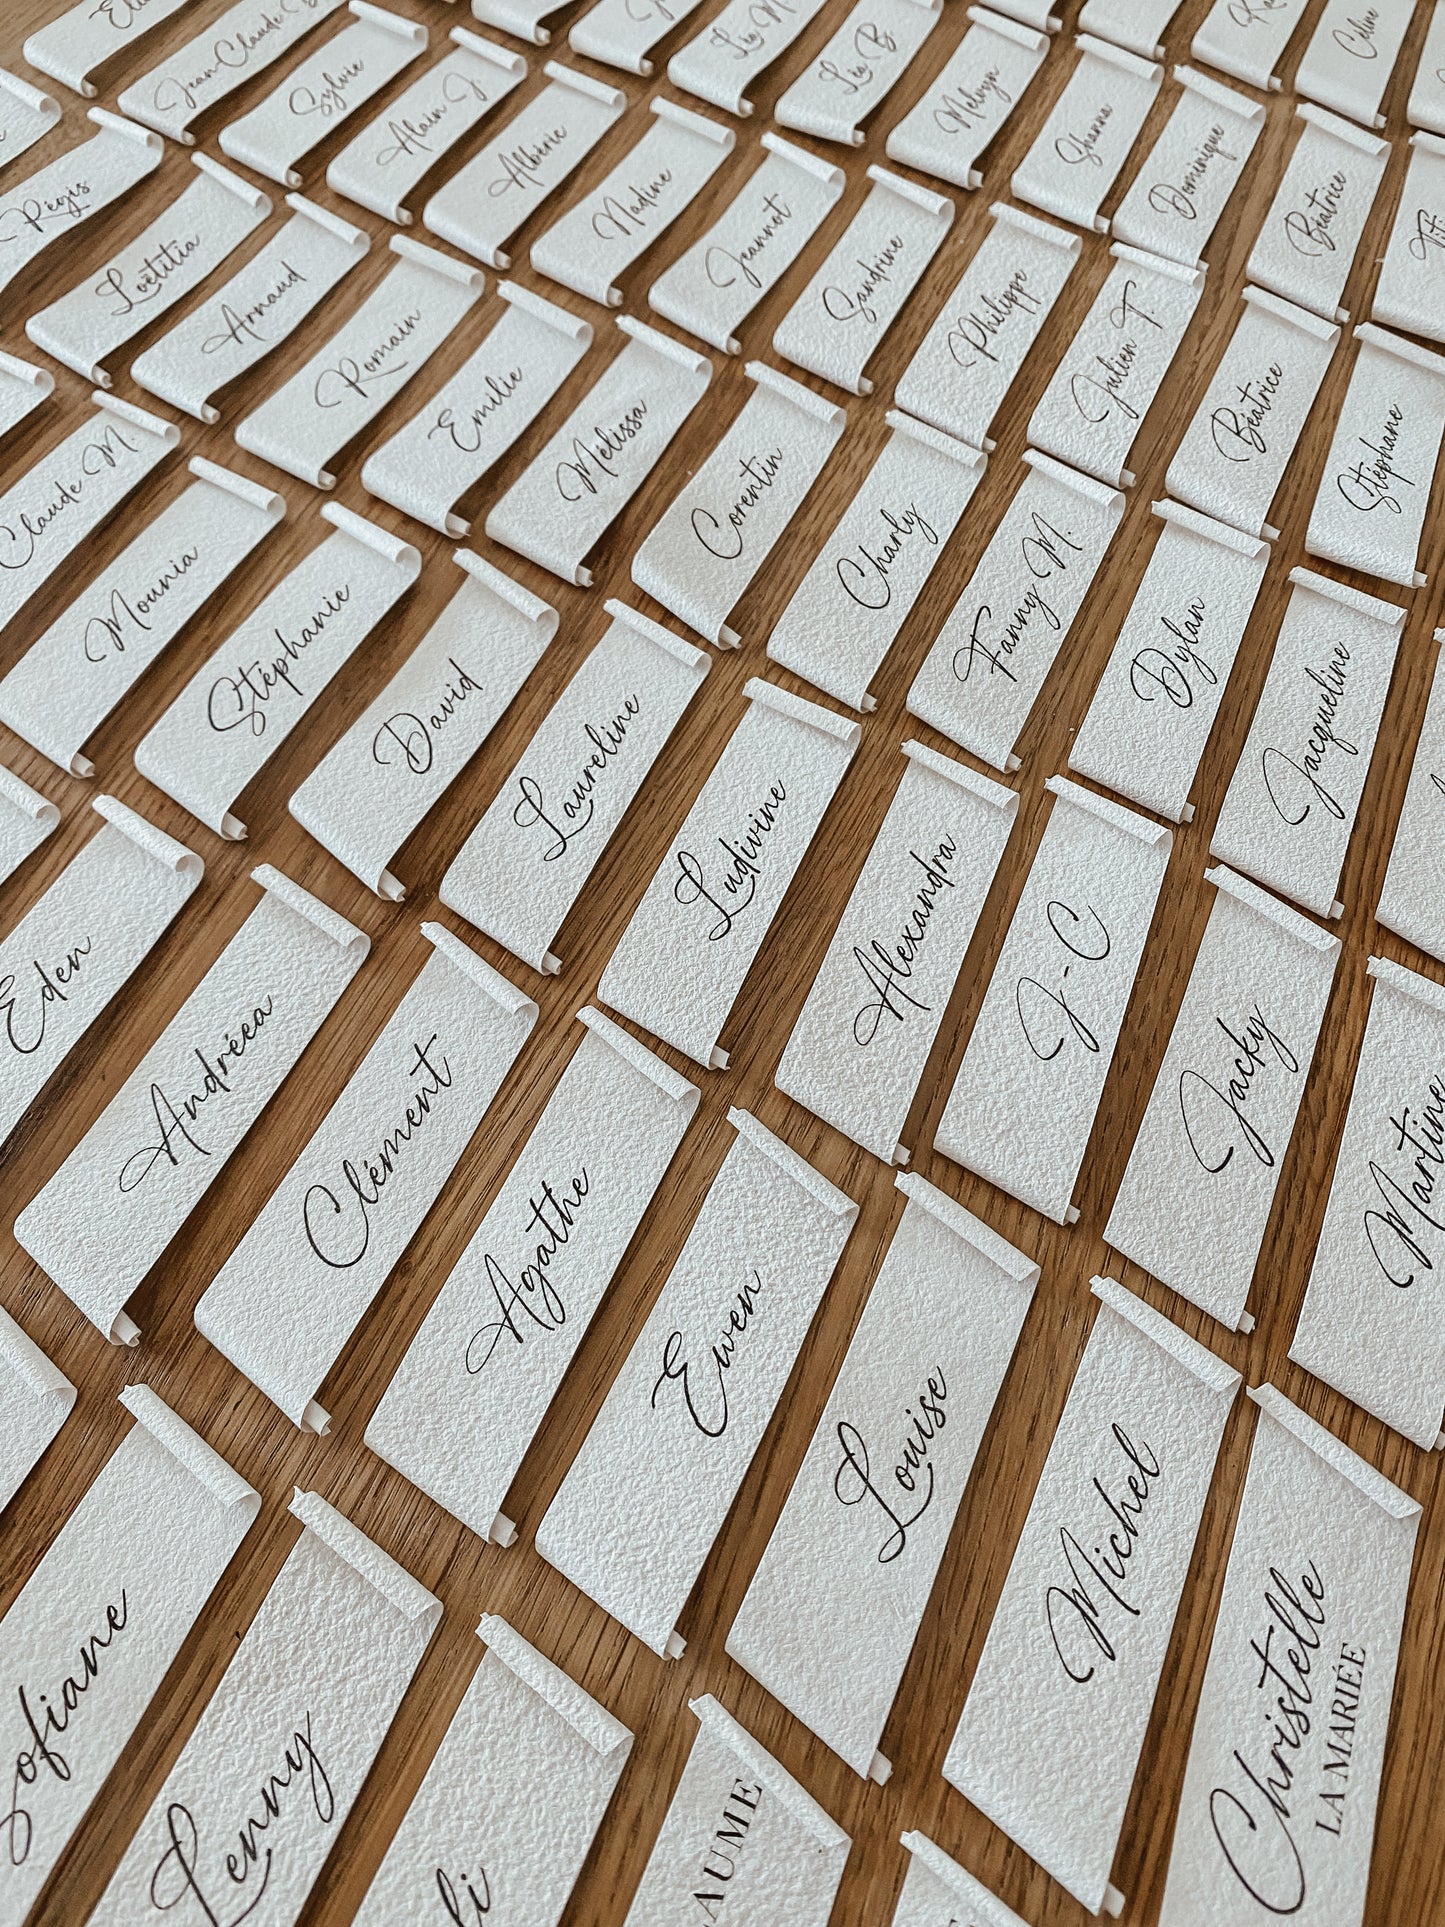 Jean-Claude
Sylvie
Alain J.
Albéric
Nadine
Jeannot
Sandrine
Philippe
Julien T.
Béatrice
Stéphane
Léa B.
Melwyn
Dominique
Béatrice
Céline
Régis
Laëtitia
Arnaud
Romain
Emilie
Mélissa
Corentin
Charly
Fanny M.
Dylan
Jacqueline
Claude M.
Mounia
Stéphanie
David
Laureline
Ludivine
Alexandra
J-C
Jacky
Martine
Eden
Andréea
Clément
Agathe
Ewen
Louise
Michel
Christelle
LA MARIÉE
Sofiane
Lenny
li
AUME